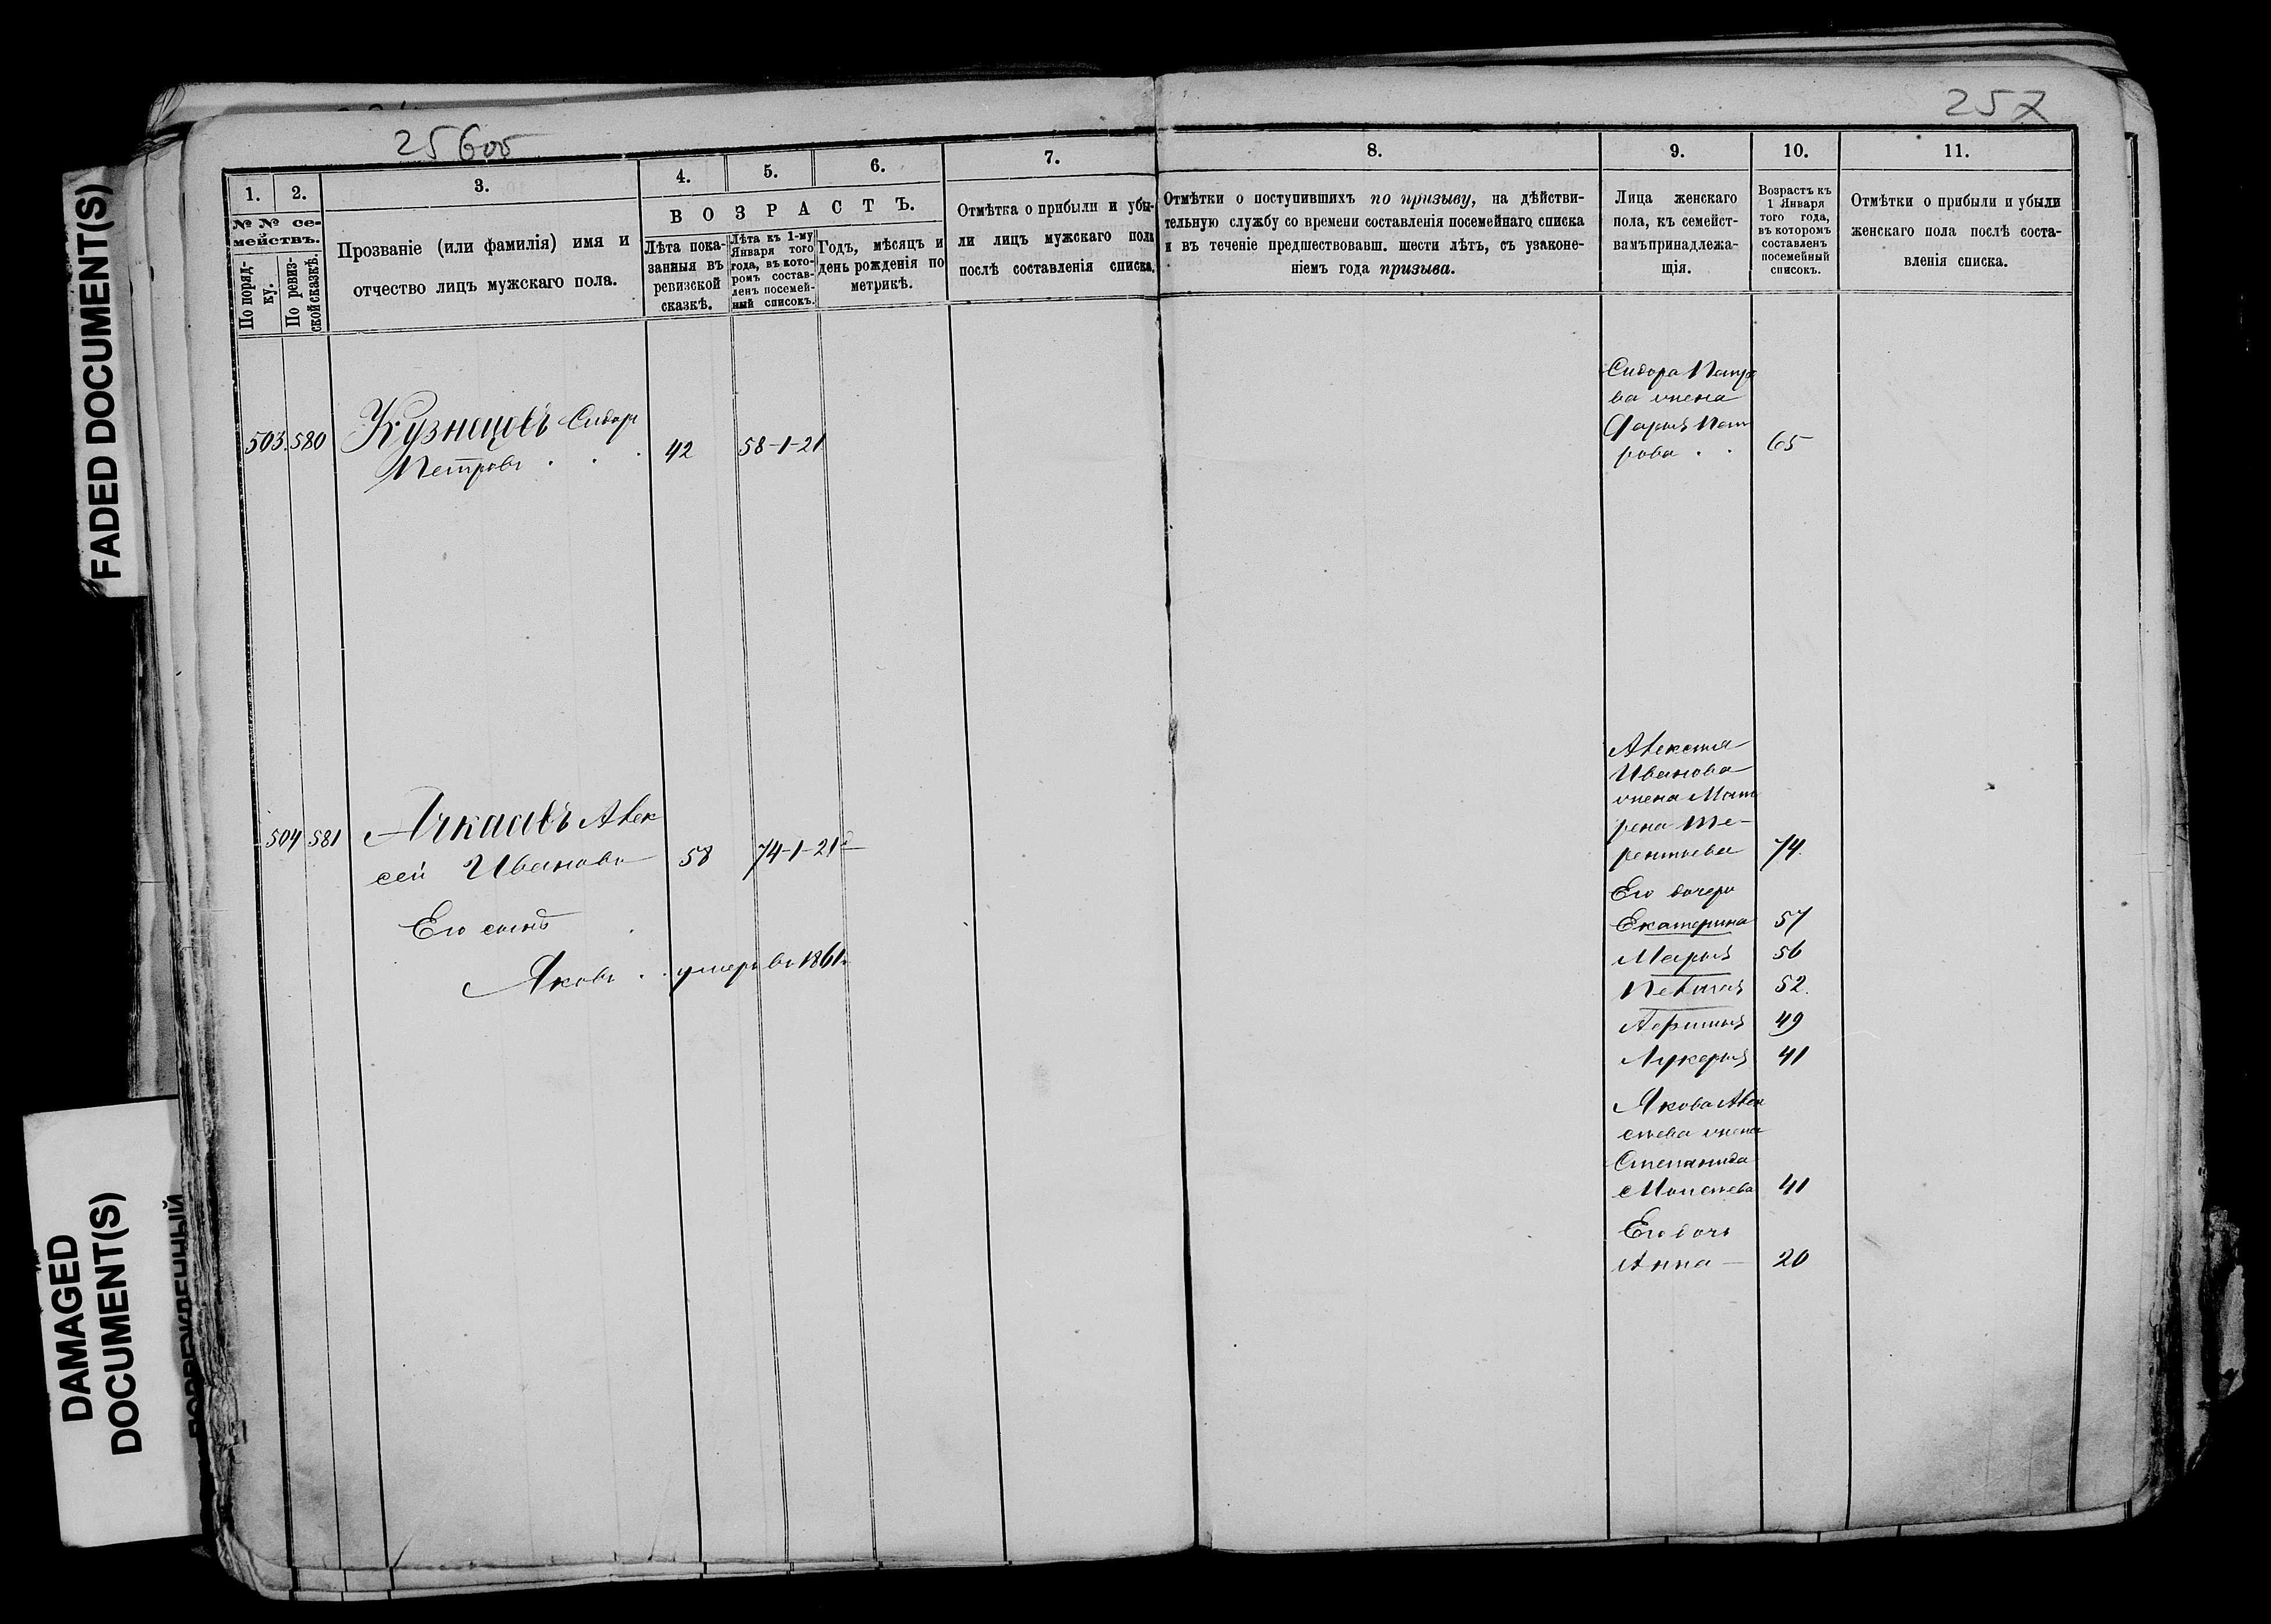 FADED DOCUMENT(S)
DAMAGED
DOCUMENT(S)
256об
257
1.
2.
3.
4.
5.
6.
7.
8.
9.
10.
11.
№ № се-
мействъ.
По поряд-
ку.
По ревиз-
ской сказкѣ.
Прозваніе (или фамилія) имя и
отчество лицъ мужскаго пола.
ВОЗРАСТЪ.
Лѣта пока-
занныя въ
ревизской
сказкѣ.
Лѣта къ 1-му
Января того
года, въ кото-
ромъ состав-
ленъ посемей-
ный списокъ.
Годъ, мѣсяцъ и
день рожденія по
метрикѣ.
Отмѣтка о прибыли и убы-
ли лицъ мужскаго пола
послѣ составленія списка.
Отмѣтки о поступившихъ по призыву, на дѣйстви-
тельную службу со времени составленія посемейнаго списка
и въ теченіе предшествовавш. шести лѣтъ, съ узаконе-
ніемъ года призыва.
Лица женскаго
пола, къ семейст-
вамъ принадлежа-
щія.
Возрастъ къ
1 Января
того года,
въ которомъ
составленъ
посемейный
списокъ.
Отмѣтки о прибыли и убыли
женскаго пола послѣ соста-
вленія списка.
503. 580 Кузнецовъ Сидоръ
Петровъ . . . 42 58-1-21
Сидора Петро
ва жена
Дарья Пет
рова . . 65
504 581 Алек
сей Ивановъ 58 74-1-21
Его сынъ
Яковъ . . умеръ въ 1861г.
Алексѣя
Иванова
жена Мат
рена Те-
рентьева 74.
Его дочери
Екатерина 57
Марья 56
Пелагея 52.
49
Лукерья 41
Якова Алек
сѣева жена
Степанида
Моисеева 41
Его дочь
Анна — 20